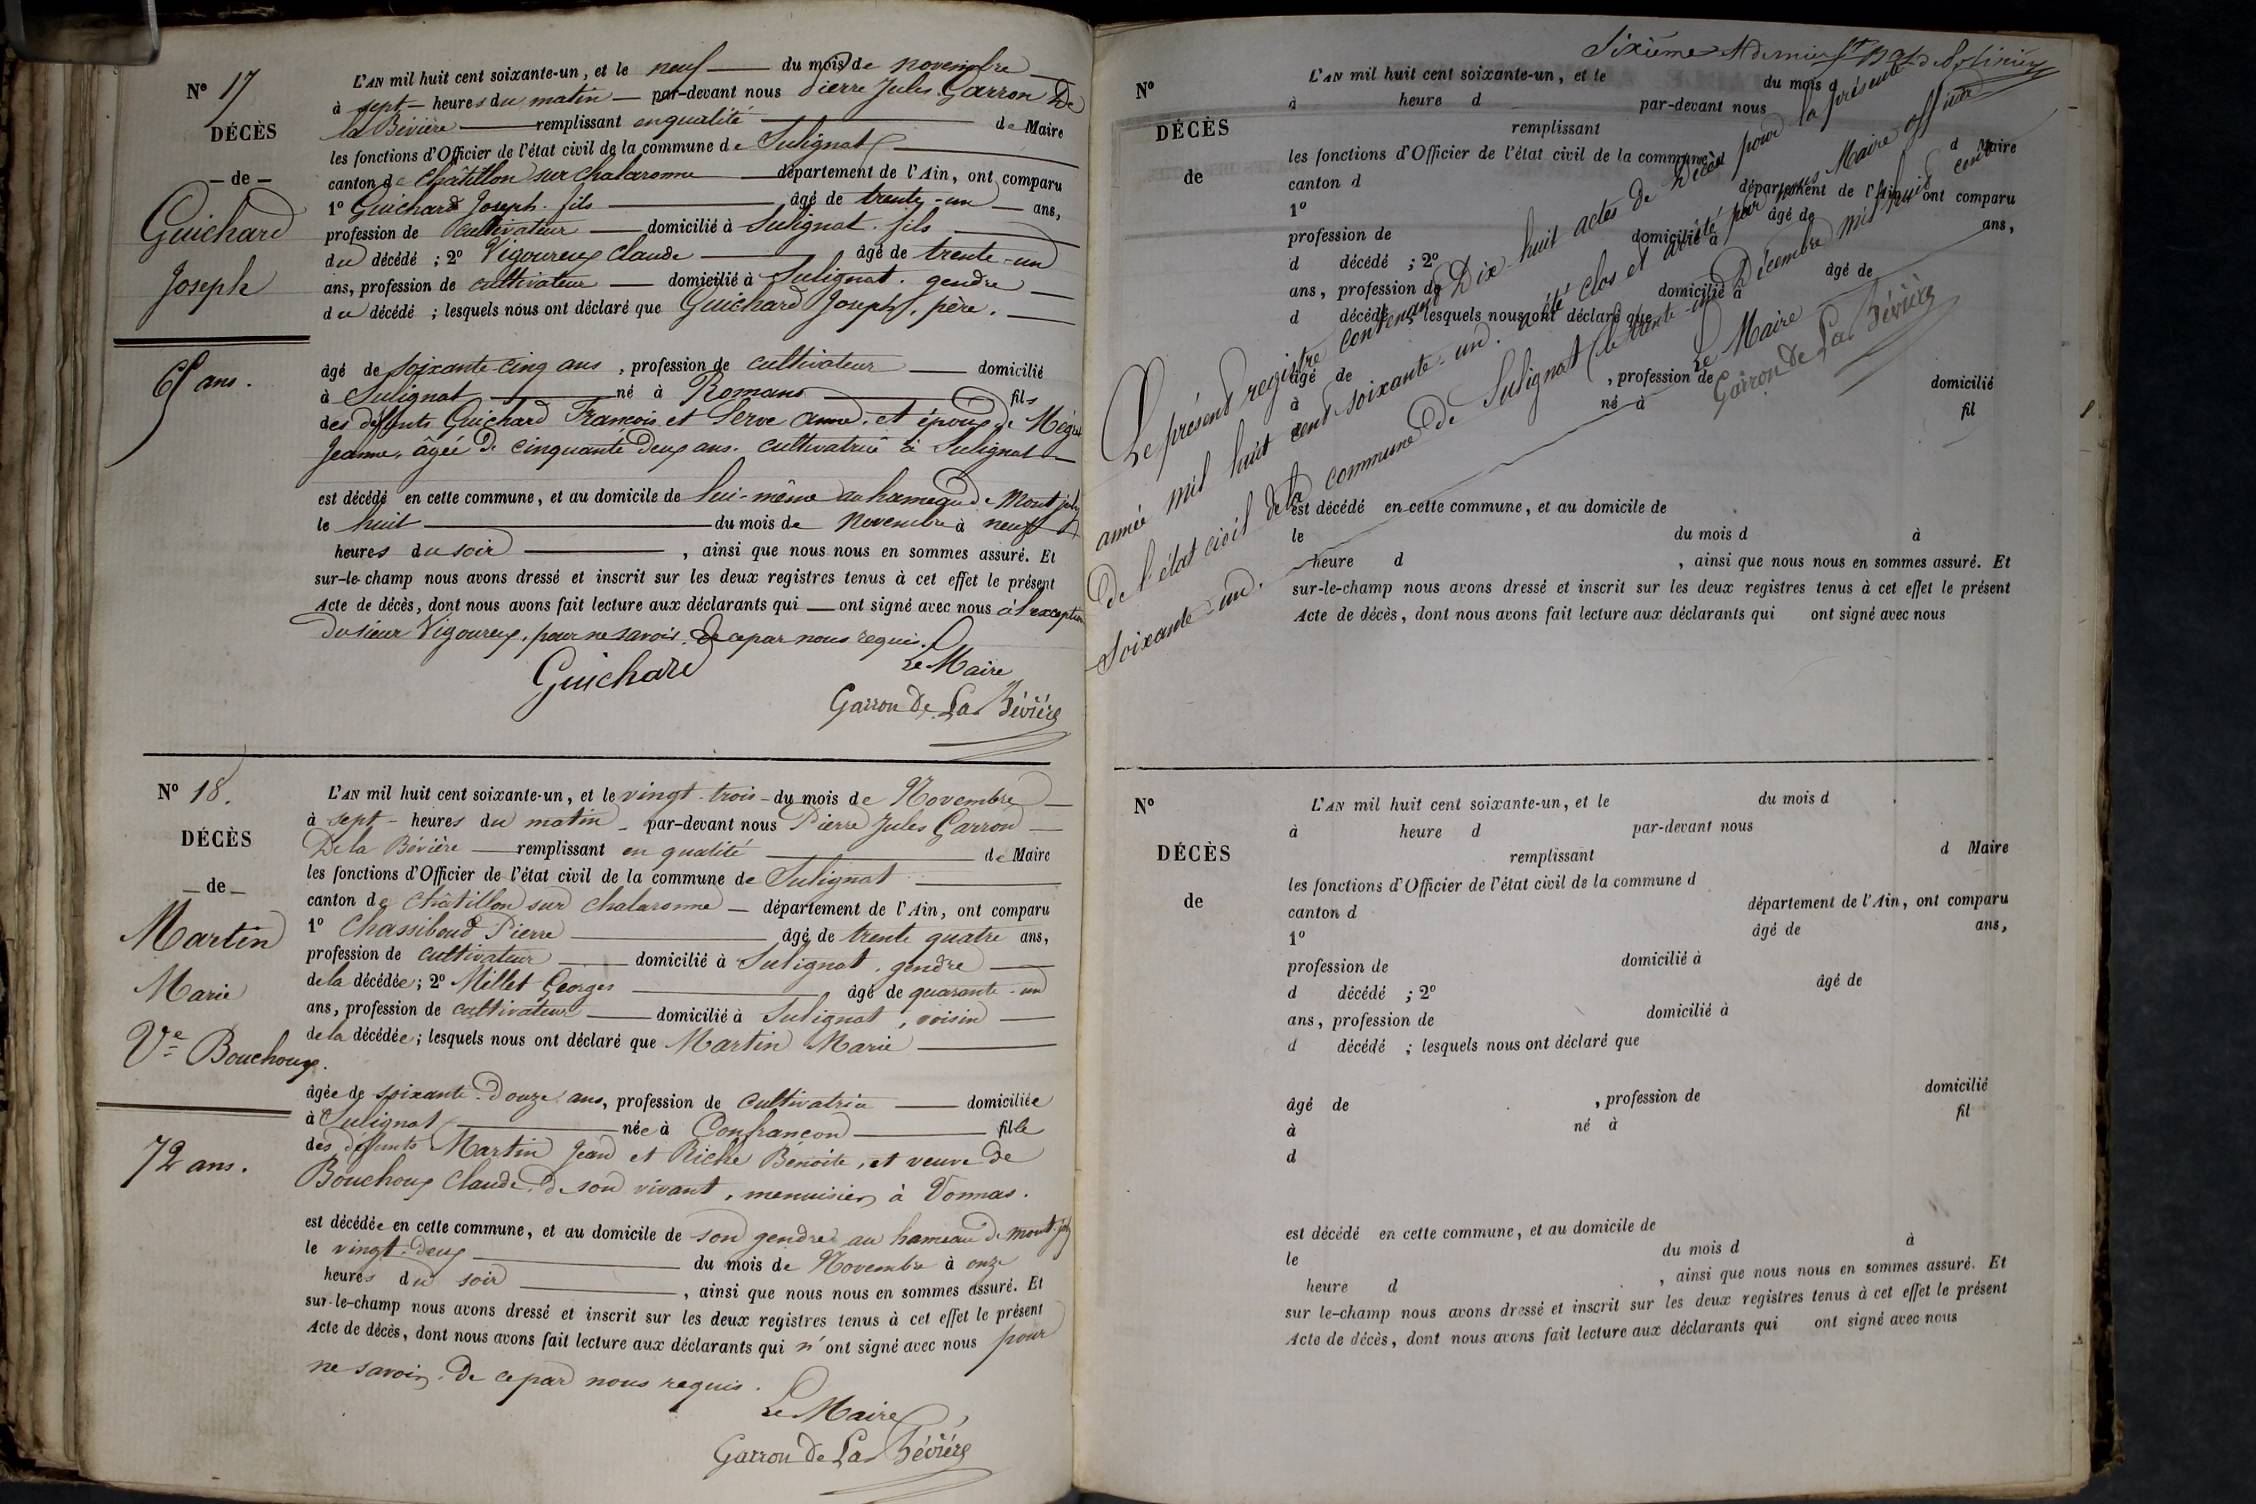 N° 17
DÉCÈS
de
Guichard
Joseph
65 ans.
L'AN mil huit cent soixante-un, et le neuf du mois de novembre
à sept heures du matin par-devant nous Pierre Jules Garron De
la Bévière remplissant en qualité de Maire
les fonctions d'Officier de l'état civil de la commune de Sulignat
canton de Châtillon sur Chalaronne département de l'Ain, ont comparu
1° Guichard Joseph fils âgé de trente-un ans,
profession de cultivateur domicilié à Sulignat. fils
du décédé ; 2° Vigoureux Claude âgé de trente-un
ans, profession de cultivateur domicilié à Sulignat. gendre
du décédé ; lesquels nous ont déclaré que Guichard Joseph, père.
âgé de soixante-cinq ans, profession de cultivateur domicilié
à Sulignat né à Romans fils
des défunts Guichard François et Serve Anne. et époux de
Jeanne, âgée de cinquante deux ans. cultivatrice à Sulignat
est décédé en cette commune, et au domicile de lui-même au hameau de Mont joly
le huit du mois de Novembre à neuf
heures du soir, ainsi que nous nous en sommes assuré. Et
sur-le-champ nous avons dressé et inscrit sur les deux registres tenus à cet effet le présent
Acte de décès, dont nous avons fait lecture aux déclarants qui ont signé avec nous à l'exception
du sieur Vigoureux, pour ne savoir. de ce par nous requis.
Guichard
Le Maire
Garron De La Bévière
N° 18.
DÉCÈS
de
Martin
Marie
Ve Bouchoux.
72 ans.
L'AN mil huit cent soixante-un, et le vingt-trois du mois de Novembre
à sept heures du matin par-devant nous Pierre Jules Garron
De la Bévière remplissant en qualité de Maire
les fonctions d'Officier de l'état civil de la commune de Sulignat
canton de Châtillon sur Chalaronne département de l'Ain, ont comparu
1° Chassiboud Pierre âgé de trente quatre ans,
profession de cultivateur domicilié à Sulignat. gendre
de la décédée ; 2° Millet Georges âgé de quarante-un
ans, profession de cultivateur domicilié à Sulignat, voisin
de la décédée ; lesquels nous ont déclaré que Martin Marie
âgée de soixante-douze ans, profession de cultivatrice domiciliée
à Sulignat née à Confrançon fille
des défunts Martin Jean et Riche Benoite, et veuve de
Bouchoux Claude, de son vivant, menuisier à Vonnas.
est décédée en cette commune, et au domicile de son gendre au hameau de mont joly
le vingt-deux du mois de Novembre à onze
heures du soir, ainsi que nous nous en sommes assuré. Et
sur-le-champ nous avons dressé et inscrit sur les deux registres tenus à cet effet le présent
Acte de décès, dont nous avons fait lecture aux déclarants qui n'ont signé avec nous pour
ne savoir. De ce par nous requis.
Le Maire
Garron De La Bévière
Sixième & dernier
N°
DÉCÈS
de
L'AN mil huit cent soixante-un, et le du mois d
à heure d par-devant nous
remplissant d Maire
les fonctions d'Officier de l'état civil de la commune d
canton d département de l'Ain, ont comparu
1° âgé de ans,
profession de domicilié à
d décédé ; 2° âgé de
ans, profession de domicilié à
d décédé ; lesquels nous ont déclaré que
âgé de , profession de domicilié
à né à fil
d
est décédé en cette commune, et au domicile de
le du mois d à
heure d , ainsi que nous nous en sommes assuré. Et
sur-le-champ nous avons dressé et inscrit sur les deux registres tenus à cet effet le présent
Acte de décès, dont nous avons fait lecture aux déclarants qui ont signé avec nous
Le présent registre contenant Dix-huit actes de Décès pour la présente
année mil huit cent soixante-un. a été clos et arrêté par nous Maire officier
De l'état civil de la commune de Sulignat le trente-un Décembre mil huit cent
Soixante-un.
Le Maire
Garron De La Bévière
N°
DÉCÈS
de
L'AN mil huit cent soixante-un, et le du mois d
à heure d par-devant nous
remplissant d Maire
les fonctions d'Officier de l'état civil de la commune d
canton d département de l'Ain, ont comparu
1° âgé de ans,
profession de domicilié à
d décédé ; 2° âgé de
ans, profession de domicilié à
d décédé ; lesquels nous ont déclaré que
âgé de , profession de domicilié
à né à fil
d
est décédé en cette commune, et au domicile de
le du mois d à
heure d , ainsi que nous nous en sommes assuré. Et
sur le-champ nous avons dressé et inscrit sur les deux registres tenus à cet effet le présent
Acte de décès, dont nous avons fait lecture aux déclarants qui ont signé avec nous